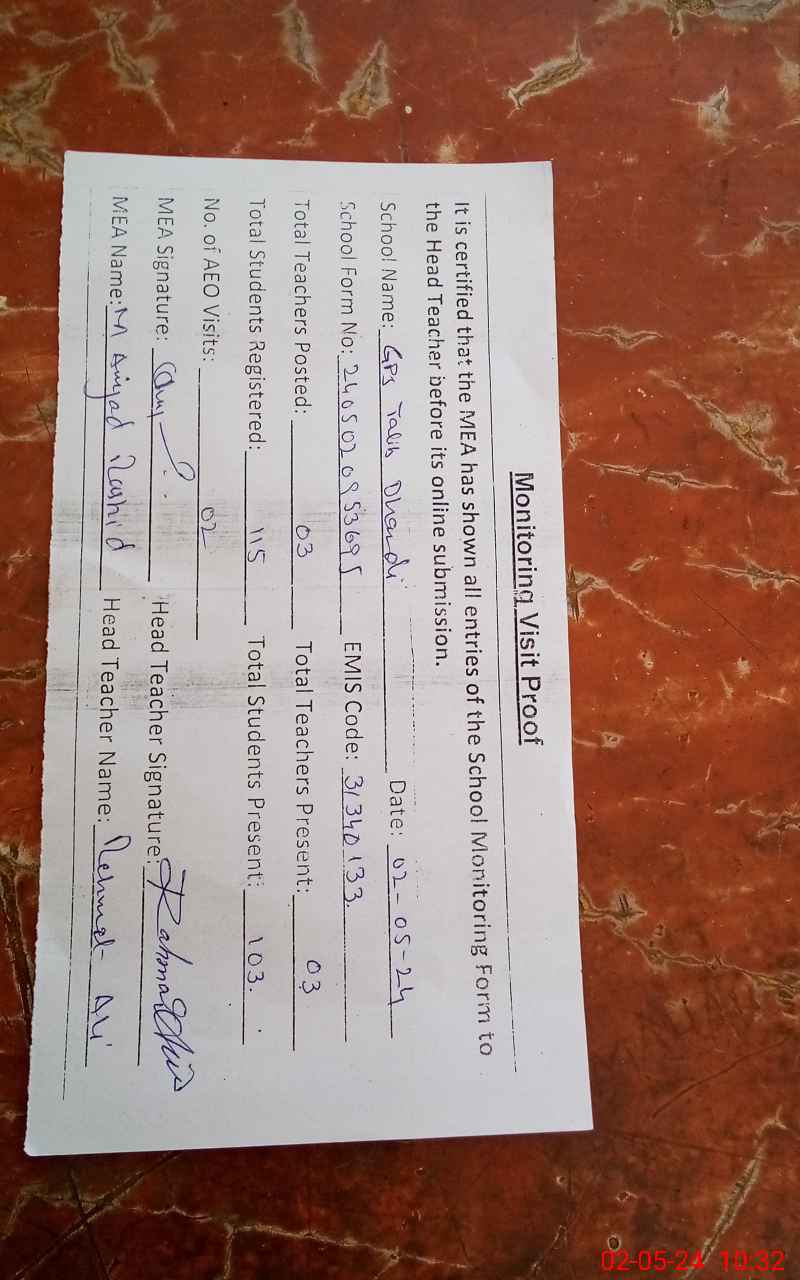 Monitoring Visit Proof
It is certified that the MEA has shown all entries of the School Monitoring Form to
the Head Teacher before its online submission.
School Name: GPS Talib Dhandi Date: 02-05-24
School Form No: 2405020953695 EMIS Code: 31340133
Total Teachers Posted: 03 Total Teachers Present: 03
Total Students Registered: 115 Total Students Present: 103.
No. of AEO Visits: 02
MEA Signature: Head Teacher Signature:
MEA Name: M Amjad Rashid Head Teacher Name: Rehmat Ali
02-05-24 10:32